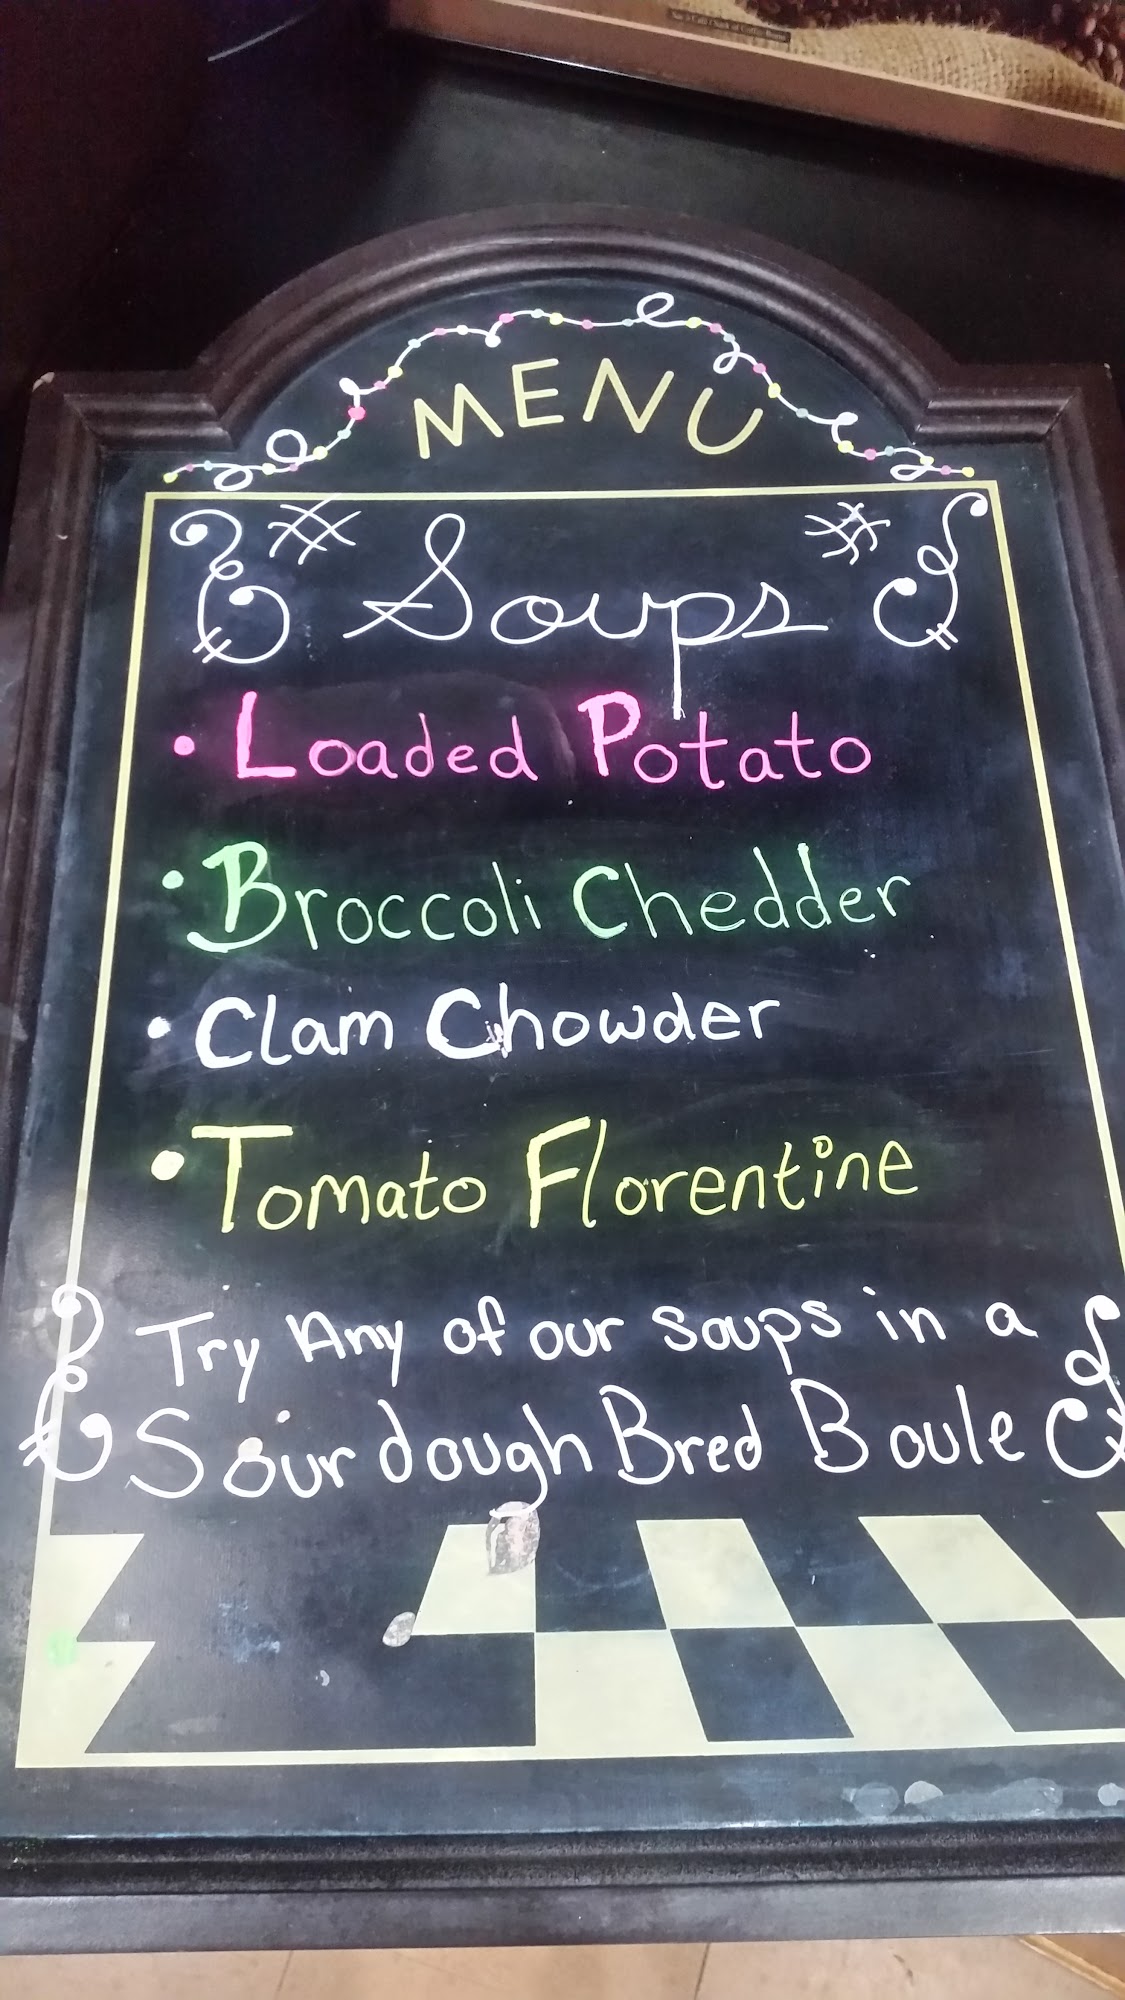 MENU
Soups
• Loaded Potato
• Broccoli Chedder
• Clam Chowder
• Tomato Florentine
Try Any of our soups in a
Sourdough Bred Boule